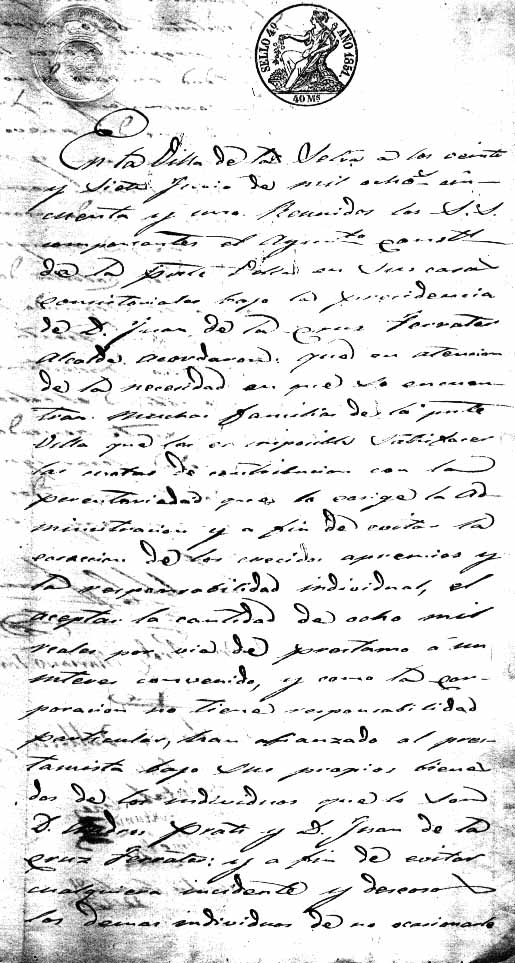 SELLO 4º AÑO 1851.
40 Ms
En la Villa de la Selva a los veinte
y siete Junio de mil ochos cin-
cuenta y uno. Reunidos los S.S.
componentes el Ayuntto Constl
de la pnte Villa en sus casas
consistoriales bajo la presidencia
de D. Juan de la Cruz Ferrater
Alcalde acordaron: que en atencion
de la necesidad en que se encuen-
tran muchas familia de la pnte
Villa que les es imposible satisfacer
las cuotas de contribucion con la
perentoriedad que lo exige la Ad-
ministracion y a fin de evitar la
de los crecidos apremios y
la responsabilidad individual, el
aceptar la cantidad de ocho mil
reales por via de prestamo á un
interes convenido, y como la Cor-
poracion no tiene responsabilidad
particular, han afianzado al pres-
tamista bajo sus propios biene
dos de los individuos que lo son
D. Prats y D. Juan de la
Cruz Ferrater: y a fin de evitar
cualquiera incidente y deseosos
los demas individuos de no ocasionarle